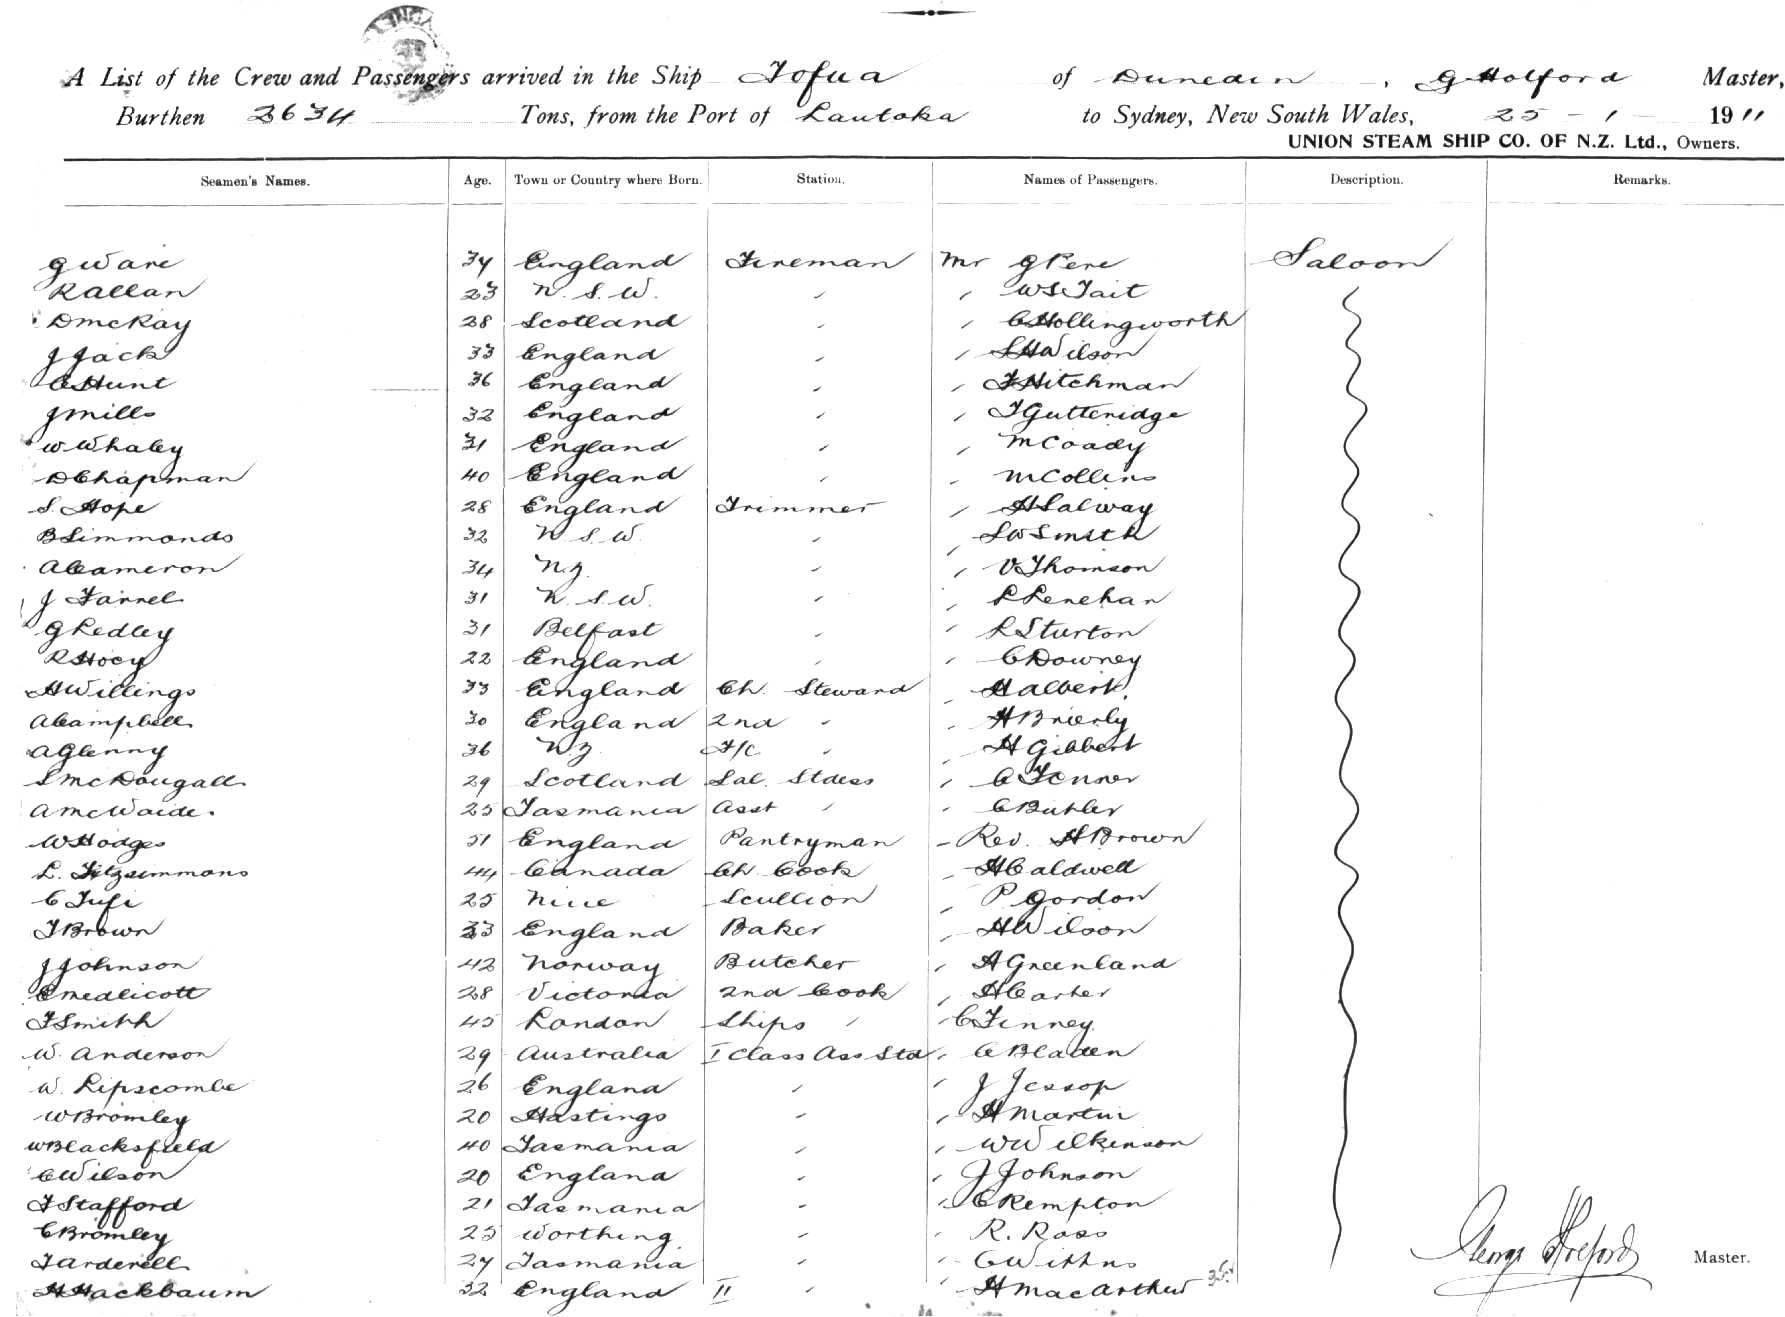 A List of the Crew and Passengers arrived in the Ship Tofua of Dunedin, G Holford Master,
Burthen 2634 Tons, from the Port of Lautoka to Sydney, New South Wales, 25 - 1 - 1911
UNION STEAM SHIP CO. OF N.Z. Ltd., Owners.
Seamen's Names. Age. Town or Country where Born. Station. Names of Passengers. Description. Remarks.
G Ware 34 England Fireman Mr G Pere Saloon
R Allan 23 N. S. W. " " W S Tait
D McKay 28 Scotland " " C Hollingworth
J Jack 33 England " " S H Wilson
C Hunt 36 England " " F Hitchman
J Mills 32 England " " T Gutteridge
W Whaley 31 England " " M Coady
D Chapman 40 England " " M Collins
S. Hope 28 England Trimmer " H Salway
B Simmonds 32 N. S. W. " " S W Smith
A Cameron 34 N.Z. " " V Thomson
J Farrel 31 N. S. W. " " L Lenehan
G Ledley 31 Belfast " " L Sturton
R Hoey 22 England " " C Downey
H Willings 33 England Ch. Steward " H Albert
A Campbell 30 England 2nd " " H Brierly
A Glenny 36 N.Z. F/C " " H Gibbert
S McDougall 29 Scotland Sal. Stdess " C Fenner
A McWaide. 25 Tasmania Asst " " C Butler
W Hodges 51 England Pantryman - Rev. H Brown
L. Fitzsimmons 44 Canada Ch. Cook " H Caldwell
C Tufi 25 Niue Scullion " P. Gordon
T Brown 33 England Baker " H Wilson
J Johnson 42 Norway Butcher " A Greenland
C Medlicott 28 Victoria 2nd Cook " H Carter
F Smith 45 London Ships " C Finney
W. Anderson 29 Australia I Class Ass Std " C Bladen
W. Lipscombe 26 England " " J Jessop
W Bromley 20 Hastings " " H Martin
W Blacksfield 40 Tasmania " " W Wilkinson
C Wilson 20 England " " J Johnson
F Stafford 21 Tasmania " " C Kempton
C Bromley 25 Worthing " " R. Ross
T Arderell 24 Tasmania " " C
H Hackbaum 32 England II " " H MacArthur 35
George Holford Master.